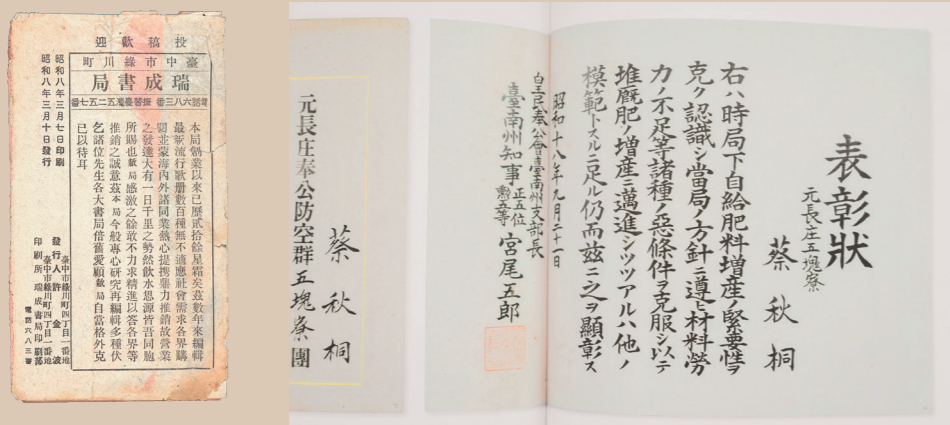 投稿歡迎
臺中市綠川町
瑞成書局
電話六八三番 振替臺灣五二五七番
本局創業以來已歷貳拾餘星霜矣茲數年來編輯
最新流行歌册數百種無不適應社會需求各界購
閱並蒙海內外諸同業熱心提携鼎力推銷故營業
之發達大有一日千里之勢然飲水思源皆吾同胞
所賜也敝局感激之餘敢不力求精進以答各界等
推銷之誠意茲本局今般專心研究再編輯多種伏
乞諸位先生各大書局倍舊愛顧敝局自當格外克
已以待耳
昭和八年三月七日印刷
昭和八年三月十日發行
臺中市綠川町四丁目一番地
發行人 許金波
臺中市綠川町四丁目一番地
印刷所 瑞成書局印刷部
電話六八三番
表彰狀
元長庄五塊寮
蔡秋桐
右ハ時局下自給肥料増産ノ緊要性ヲ
克ク認識シ當局ノ方針ニ遵ヒ材料勞
力ノ不足等諸種ノ惡條件ヲ克服シ以テ
堆厩肥ノ増産ニ邁進シツツアルハ他ノ
模範トスルニ足ル仍而茲ニ之ヲ顯彰ス
昭和十八年九月二十一日
皇民奉公會臺南州支部長
臺南州知事 正五位勲五等 宮尾五郎
元長庄奉公防空群五塊寮團
蔡秋桐